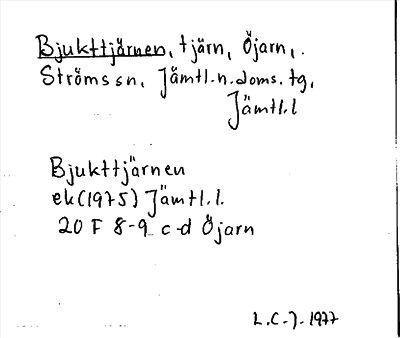 Bjukttjärnen, tjärn, Öjarn,.
Ströms sn, Jämtl.n.doms.tg,
Jämtl.l
Bjukttjärnen
ek(1975) Jämtl.l.
20 F 8-9 c-d Öjarn
L.C-J. 1977